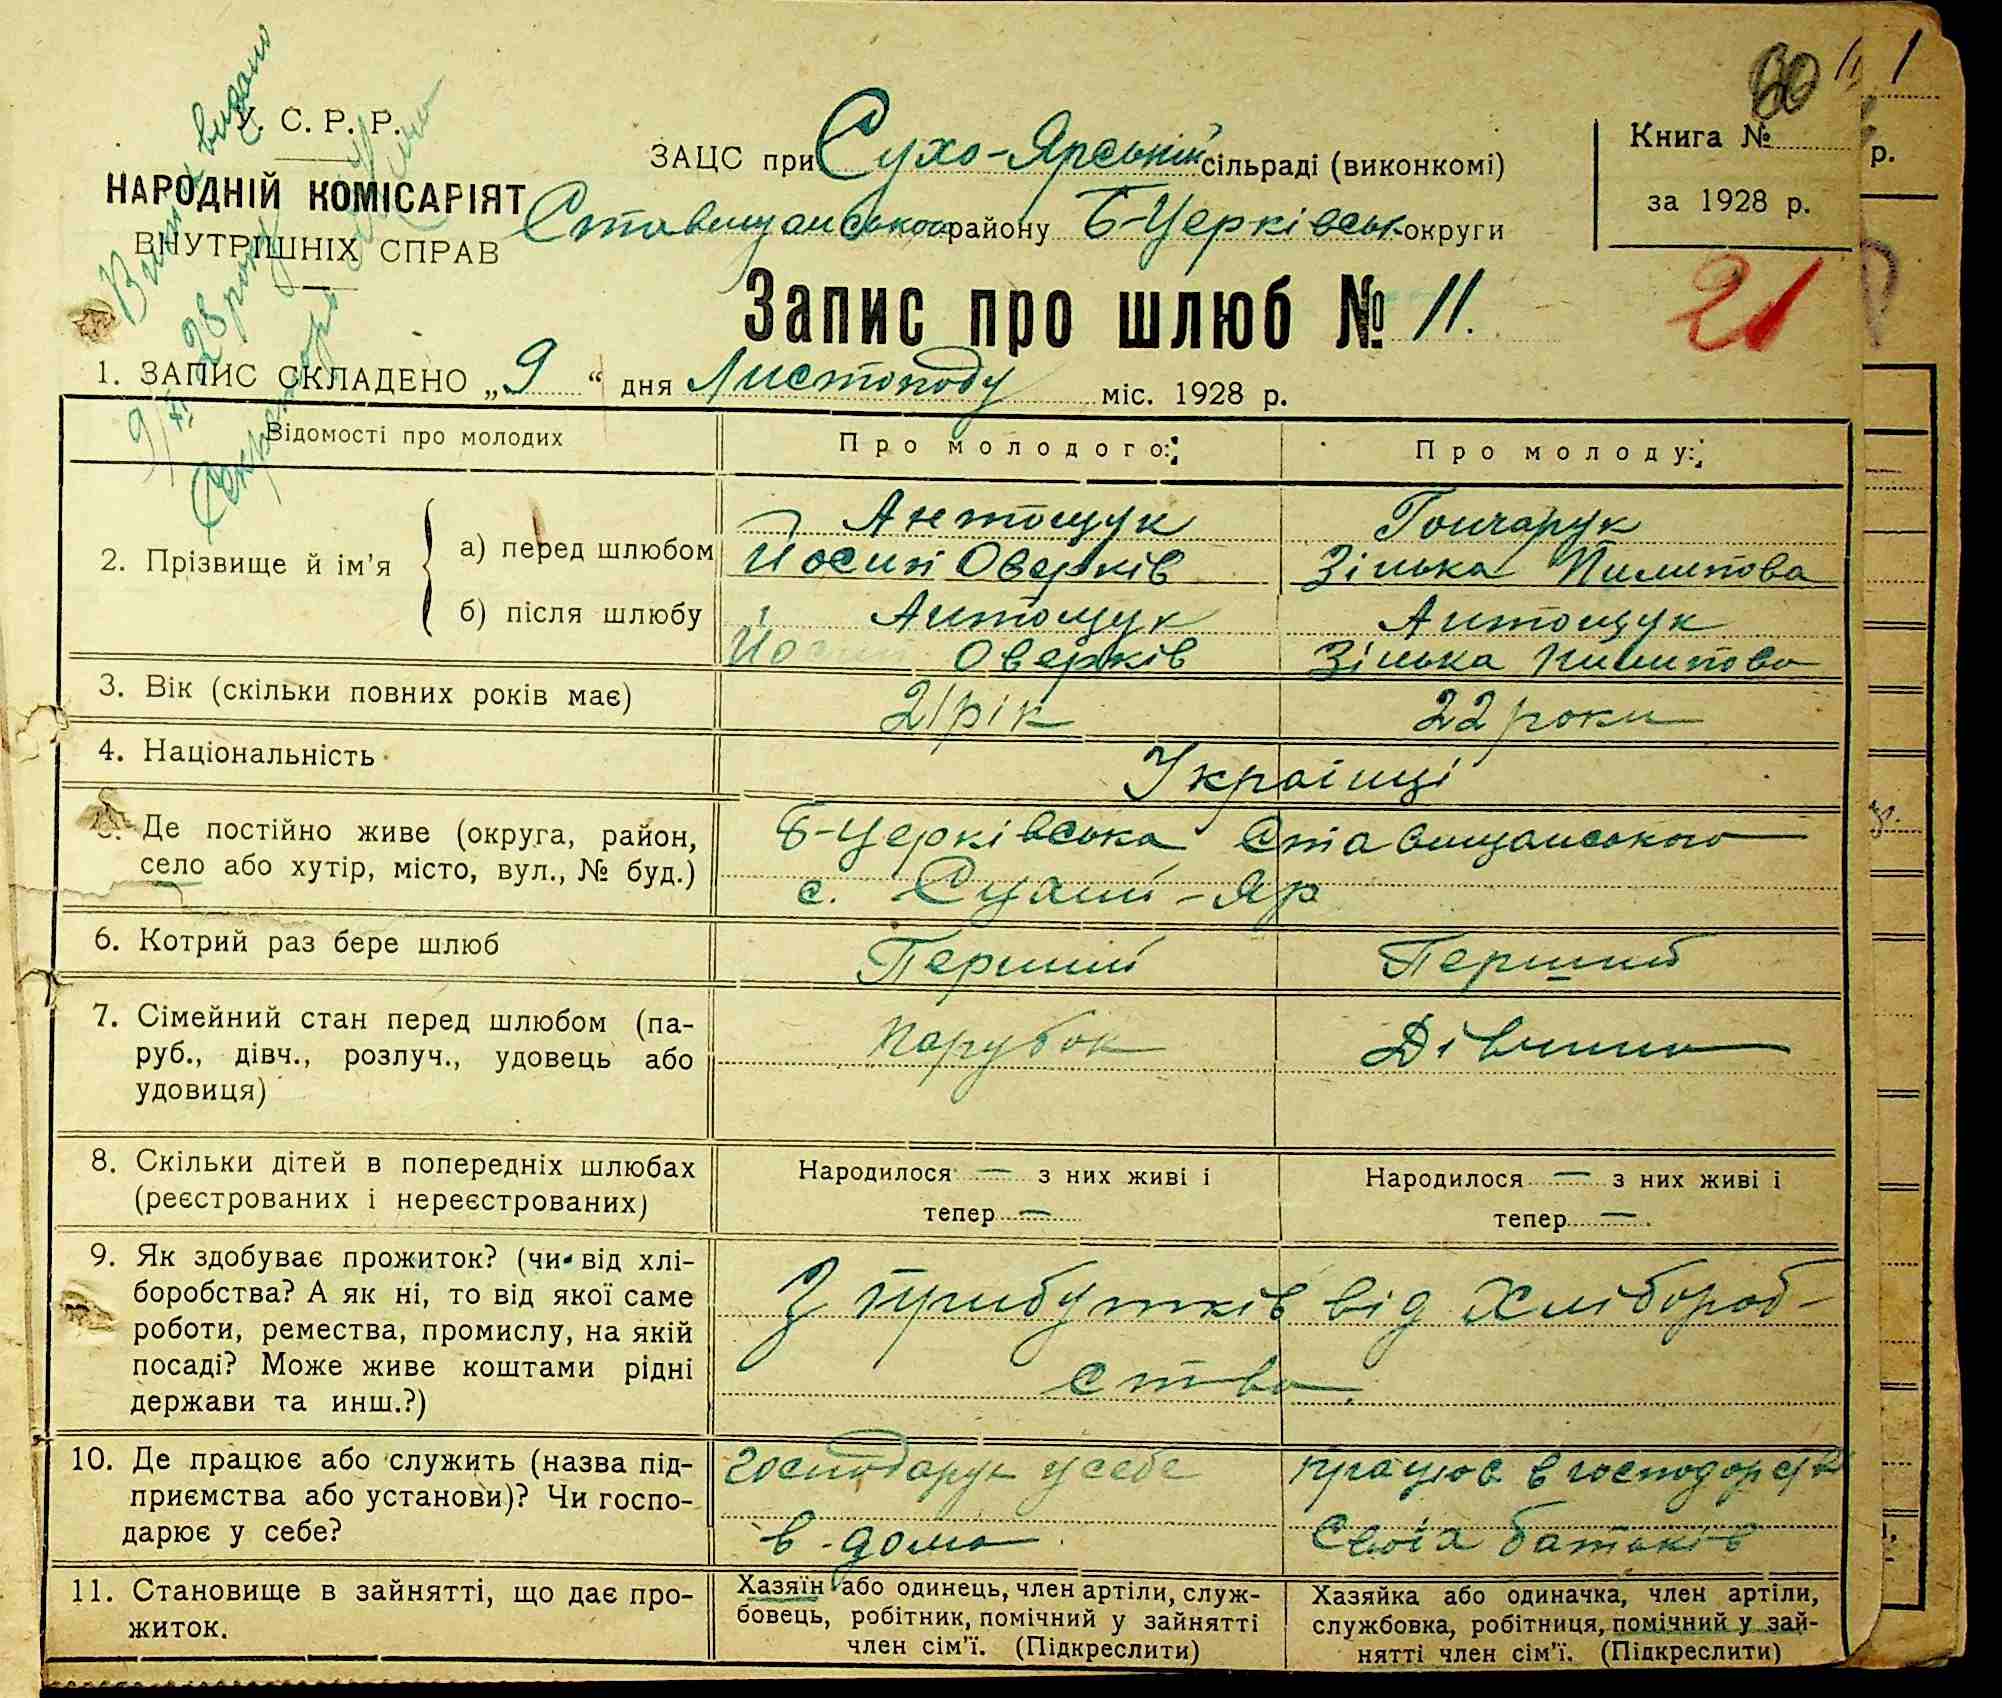 У. С. Р. Р.
НАРОДНІЙ КОМІСАРІЯТ
ВНУТРІШНІХ СПРАВ
ЗАЦС при Сухо-Ярській сільраді (виконкомі)
Ставищанського району Б-Церківськ округи
Книга №
за 1928 р.
60
1
р.
21
Запис про шлюб № 11.
Вип видано
9/XI 28 року
Секретар
1. ЗАПИС СКЛАДЕНО „9“ дня Листопаду міс. 1928 р.
Відомості про молодих
Про молодого:
Про молоду:
2. Прізвище й ім’я
а) перед шлюбом
Антощук
Йосип Оверків
Гончарук
Зінька Пилипова
б) після шлюбу
Антощук
Йосип Оверків
Антощук
Зінька Пилипова
3. Вік (скільки повних років має)
21 рік
22 роки
4. Національність
Українці
5. Де постійно живе (округа, район,
село або хутір, місто, вул., № буд.)
Б-Церківська Ставищанського
с. Сухий-Яр
6. Котрий раз бере шлюб
Перший
Перший
7. Сімейний стан перед шлюбом (па-
руб., дівч., розлуч., удовець або
удовиця)
Парубок
Дівчина
8. Скільки дітей в попередніх шлюбах
(реєстрованих і нереєстрованих)
Народилося — з них живі і
тепер —
Народилося — з них живі і
тепер —
9. Як здобуває прожиток? (чи від хлі-
боробства? А як ні, то від якої саме
роботи, ремества, промислу, на якій
посаді? Може живе коштами рідні
держави та инш.?)
З прибутків від Хлібороб-
ства
10. Де працює або служить (назва під-
приємства або установи)? Чи госпо-
дарює у себе?
господарує у себе
в дома
працює в господарстві
своїх батьків
11. Становище в зайнятті, що дає про-
житок.
Хазяїн або одинець, член артіли, служ-
бовець, робітник, помічний у зайнятті
член сім’ї. (Підкреслити)
Хазяйка або одиначка, член артіли,
службовка, робітниця, помічний у зай-
нятті член сім’ї. (Підкреслити)